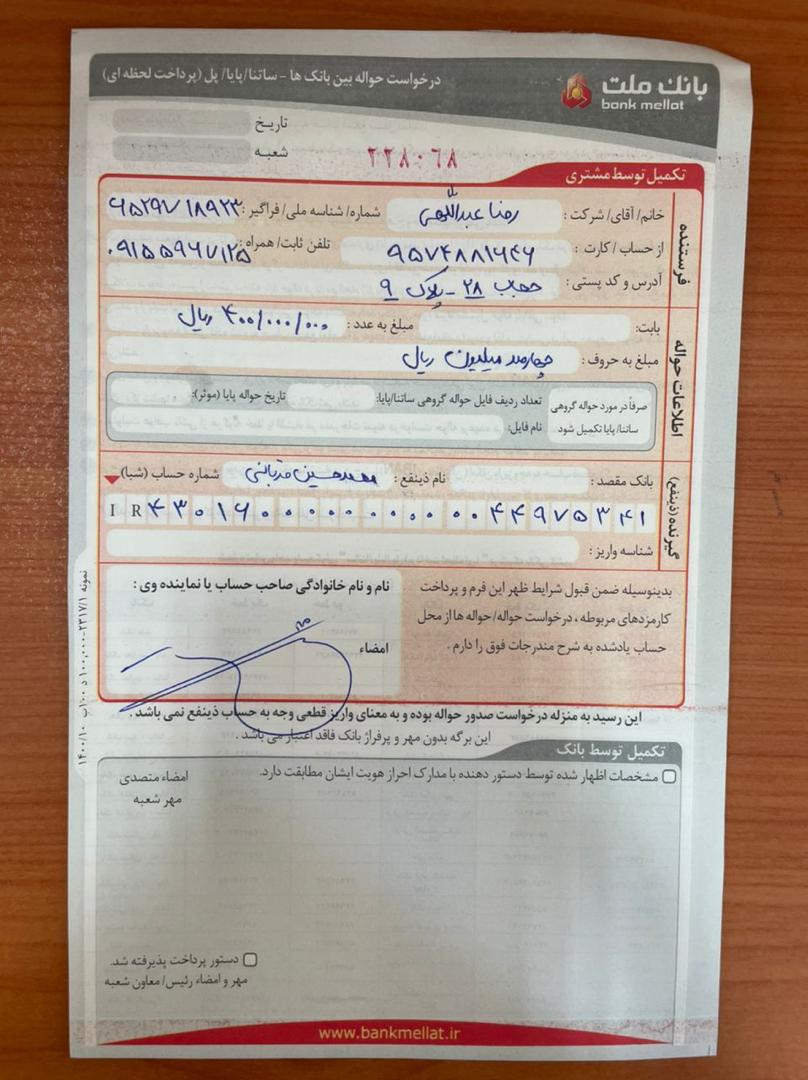 بانک ملت
bank mellat
درخواست حواله بین بانک ها - ساتنا/پایا/ پل (پرداخت لحظه ای)
تاریخ
شعبه
۲۲۸۰۶۸
تکمیل توسط مشتری
فرستنده
خانم/ آقای/ شرکت: رضا عبداللهی شماره/ شناسه ملی/ فراگیر: ۶۵۲۹۷۱۸۹۲۳
از حساب / کارت : ۹۵۷۴۸۸۱۶۴۶ تلفن ثابت/ همراه: ۰۹۱۵۵۹۶۷۱۲۵
آدرس و کد پستی : حجاب ۲۸ - پلاک ۹
اطلاعات حواله
بابت: مبلغ به عدد : ۴۰۰/۰۰۰/۰۰۰ ریال
مبلغ به حروف : چهارصد میلیون ریال
صرفاً در مورد حواله گروهی ساتنا/ پایا تکمیل شود
تعداد ردیف فایل حواله گروهی ساتنا/پایا: تاریخ حواله پایا (موثر):
نام فایل:
گیرنده (ذینفع)
بانک مقصد : نام ذینفع : محمدحسین قربانی شماره حساب (شبا)
I R ۴ ۳ ۰ ۱ ۶ ۰ ۰ ۰ ۰ ۰ ۰ ۰ ۰ ۰ ۰ ۰ ۴ ۴ ۹ ۷ ۵ ۳ ۴ ۱
شناسه واریز :
بدینوسیله ضمن قبول شرایط ظهر این فرم و پرداخت
کارمزدهای مربوطه ، درخواست حواله/ حواله ها از محل
حساب یادشده به شرح مندرجات فوق را دارم .
نام و نام خانوادگی صاحب حساب یا نماینده وی :
امضاء
این رسید به منزله درخواست صدور حواله بوده و به معنای واریز قطعی وجه به حساب ذینفع نمی باشد .
این برگه بدون مهر و پرفراژ بانک فاقد اعتبار می باشد .
تکمیل توسط بانک
مشخصات اظهار شده توسط دستور دهنده با مدارک احراز هویت ایشان مطابقت دارد.
امضاء متصدی
مهر شعبه
دستور پرداخت پذیرفته شد.
مهر و امضاء رئیس/ معاون شعبه
www.bankmellat.ir